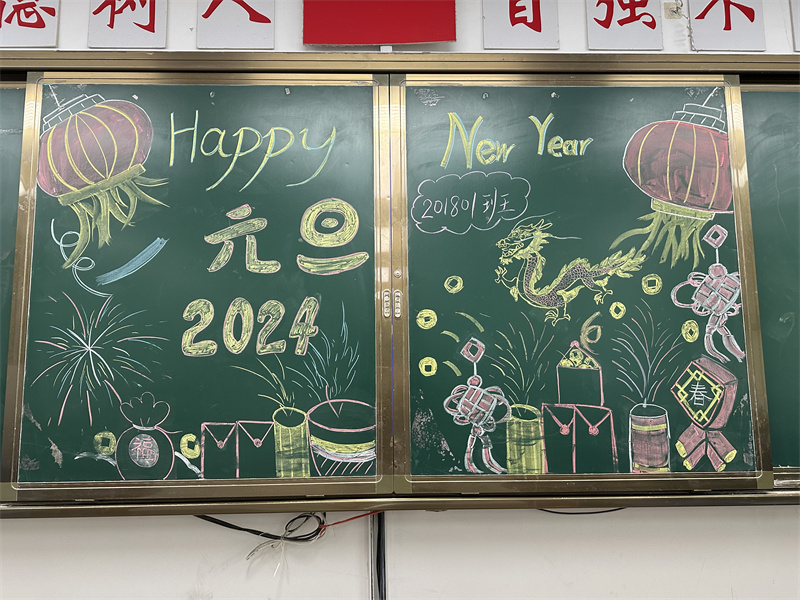 德树人 自强不
Happy
元旦
2024
福
New Year
201801班
春